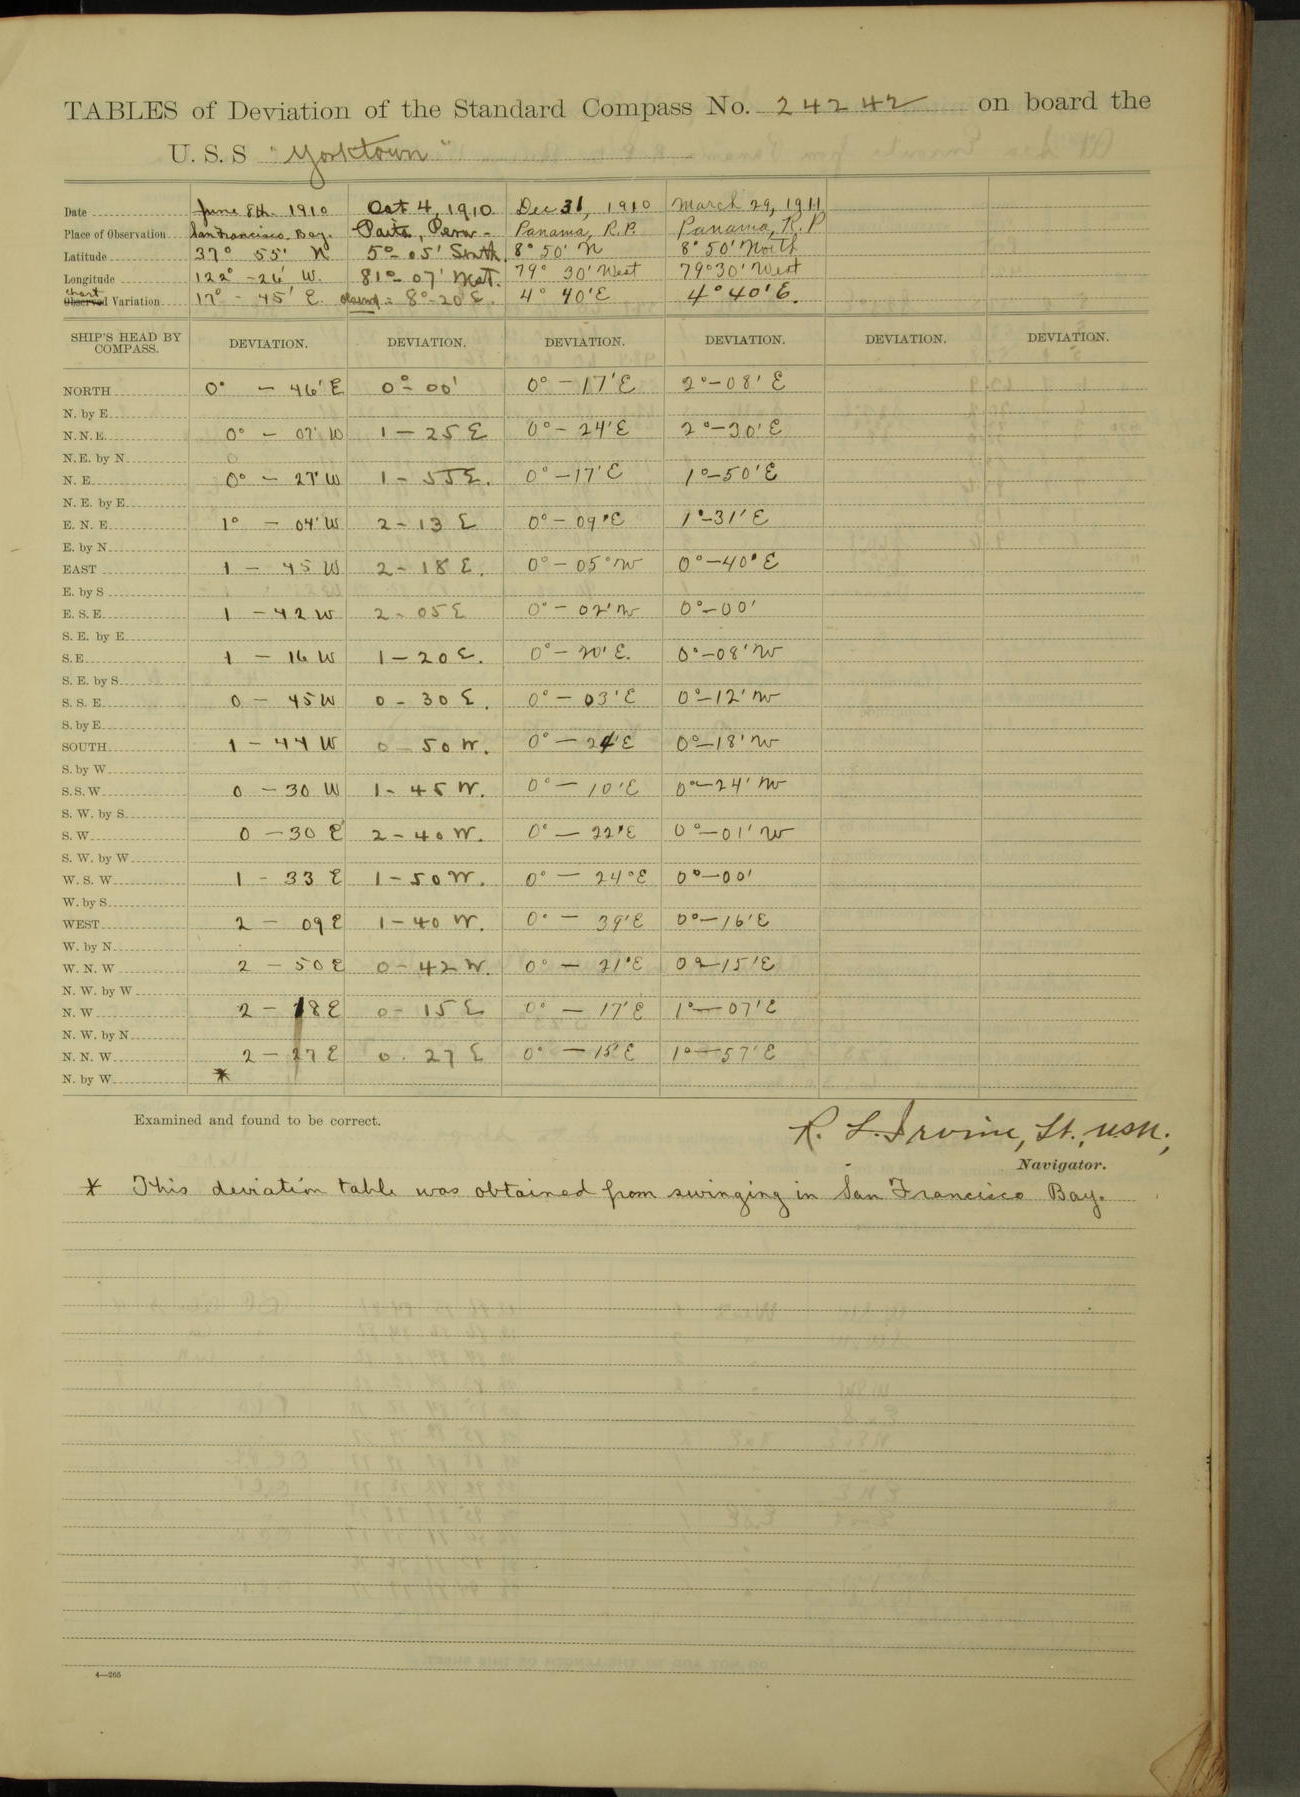 TABLES of Deviation of the Standard Compass No. 24242 on board the
U. S. S "Yorktown"
Date June 8th. 1910 Oct 4, 1910 Dec 31, 1910 March 29, 1911
Place of Observation San Francisco Bay. Paita, Peru - Panama, R.P. Panama, R. P
Latitude 37° 55' N 5° - 05' South. 8° 50' N 8° 50' North
Longitude 122° - 26' W. 81° - 07' West. 79° 30' West 79° 30' West
chart
Observed Variation 17° - 45' E. observd = 8° - 20' E. 4° 40' E 4° 40' E.
SHIP'S HEAD BY COMPASS. DEVIATION. DEVIATION. DEVIATION. DEVIATION. DEVIATION. DEVIATION.
NORTH 0° - 46' E 0° - 00' 0° - 17' E 2° - 08' E
N. by E
N. N. E. 0° - 07' W 1 - 25 E 0° - 24' E 2° - 30' E
N. E. by N
N. E. 0° - 27' W 1 - 55 E. 0° - 17' E 1° - 50' E
N. E. by E.
E. N. E. 1° - 04' W 2 - 13 E 0° - 09' E 1° - 31' E
E. by N
EAST 1 - 45 W 2 - 18 E. 0° - 05° W 0° - 40' E
E. by S
E. S. E. 1 - 42 W 2 - 05 E 0° - 02' W 0° - 00'
S. E. by E
S. E 1 - 16 W 1 - 20 E. 0° - 20' E. 0° - 08' W
S. E. by S
S. S. E 0 - 45 W 0 - 30 E. 0° - 03' E 0° - 12' W
S. by E
SOUTH 1 - 44 W 0 - 50 W. 0° - 24' E 0° - 18' W
S. by W
S. S. W 0 - 30 W 1 - 45 W. 0° - 10' E 0° - 24' W
S. W. by S
S. W 0 - 30 E 2 - 40 W. 0° - 22' E 0° - 01' W
S. W. by W
W. S. W 1 - 33 E 1 - 50 W. 0° - 24° E 0° - 00'
W. by S
WEST 2 - 09 E 1 - 40 W. 0° - 39' E 0° - 16' E
W. by N
W. N. W 2 - 50 E 0 - 42 W. 0° - 21' E 0° - 15' E
N. W. by W
N. W 2 - 18 E 0 - 15 E 0° - 17' E 1° - 07' E
N. W. by N
N. N. W 2 - 27 E 0 - 27 E 0° - 15' E 1° - 57' E
N. by W *
Examined and found to be correct.
R. L. Irvine, Lt., U.S.N.,
Navigator.
* This deviation table was obtained from swinging in San Francisco Bay.
4—266